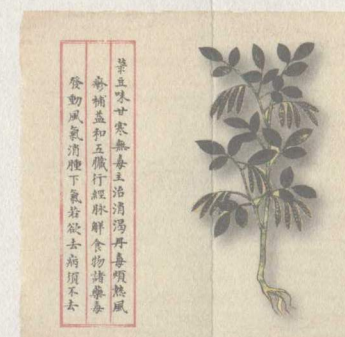 菉豆味甘寒無毒主治消渴丹毒煩熱風
疹補益和五臟行經脉解食物諸藥毒
發動風氣消腫下氣若欲去病須不去